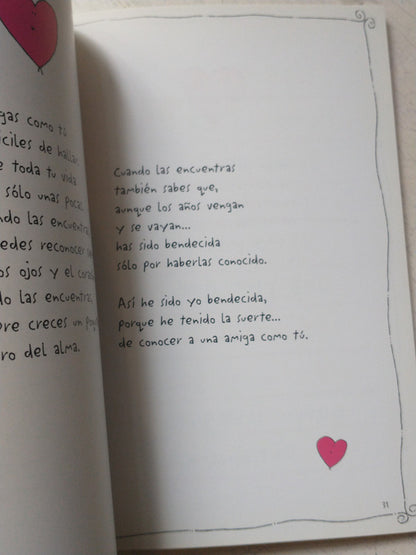 gas como tú
ciles de hallar
e toda tu vida
sólo unas pocas
ndo las encuentras
edes reconocer
os ojos y el
do las encuentras
bre creces un
ro del alma.
Cuando las encuentras
también sabes que,
aunque los años vengan
y se vayan...
has sido bendecida
sólo por haberlas conocido.
Así he sido yo bendecida,
porque he tenido la suerte...
de conocer a una amiga como tú.
11